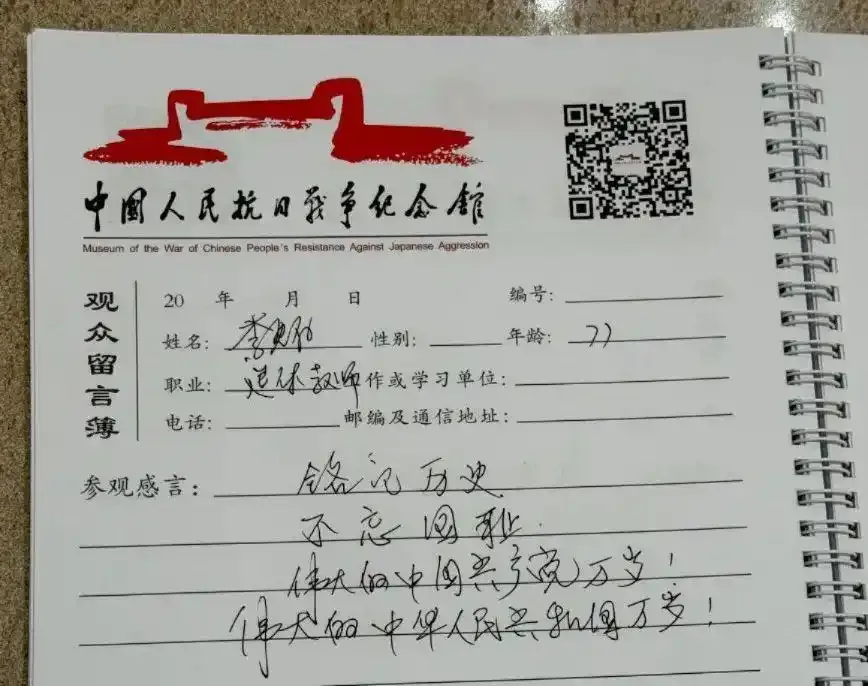 中國人民抗日戰爭纪念館
Museum of the War of Chinese People's Resistance Against Japanese Aggression
观众留言簿
20 年 月 日 编号:
姓名: 李 性别: 年龄: 77
职业: 退休教师 作或学习单位:
电话: 邮编及通信地址:
参观感言: 铭记历史
不忘国耻.
伟大的中国共产党万岁!
伟大的中华人民共和国万岁!